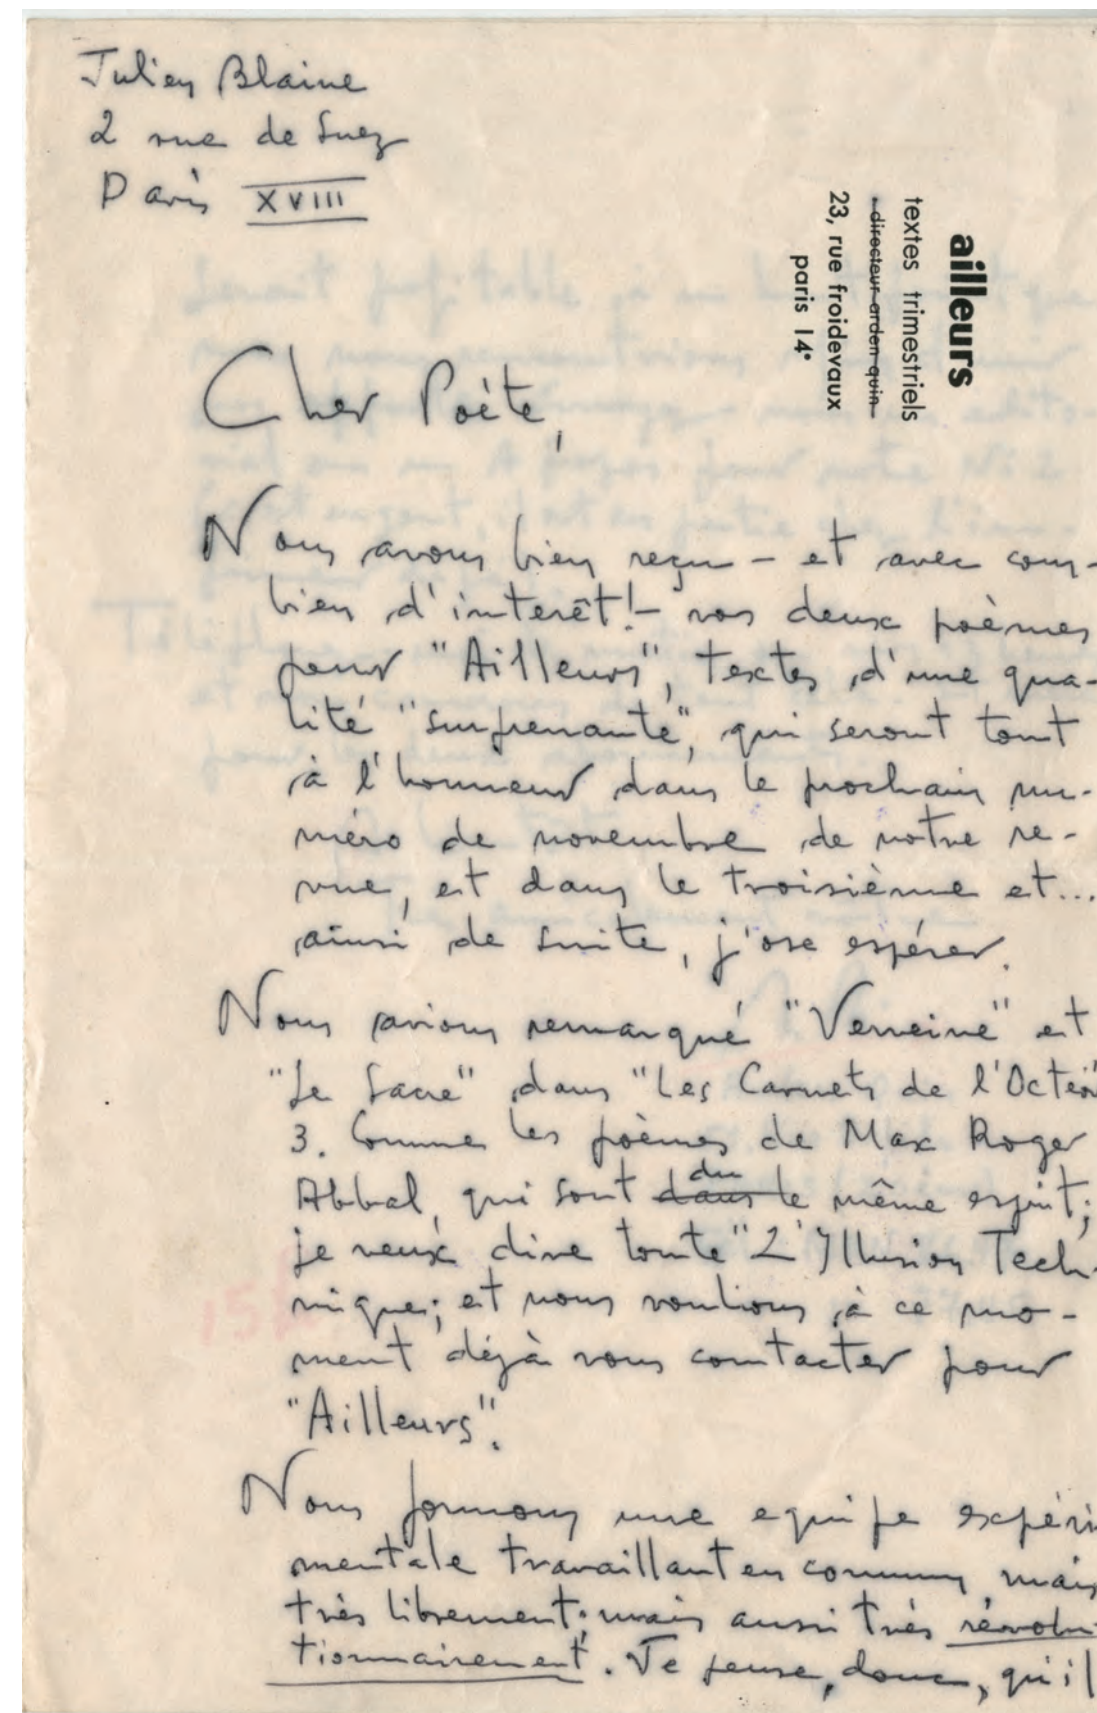 Julien Blaine
2 rue de Suez
Paris XVIII
ailleurs
textes trimestriels
directeur arden quin
23, rue froidevaux
paris 14e
Cher Poète,
Nous avons bien reçu – et avec com-
bien d'interêt! – vos deux poèmes
pour "Ailleurs", textes d'une qua-
lité "surprenante", qui seront tout
à l'honneur dans le prochain nu-
méro de novembre de notre re-
vue, et dans le troisième et...
ainsi de suite, j'ose espérer.
Nous avions remarqué "Verveine" et
"Le Sacre" dans "Les Carnets de l'Octéor"
3. Comme les poèmes de Max Roger
Abbal, qui sont dans du le même esprit;
je veux dire toute "L'Illusion Tech-
nique; et nous voulions à ce mo-
ment déjà vous contacter pour
"Ailleurs".
Nous formons une equipe expéri
mentale travaillant en commun mais
très librement; mais aussi très révolu-
tionnairement. Je pense, donc, qu'il